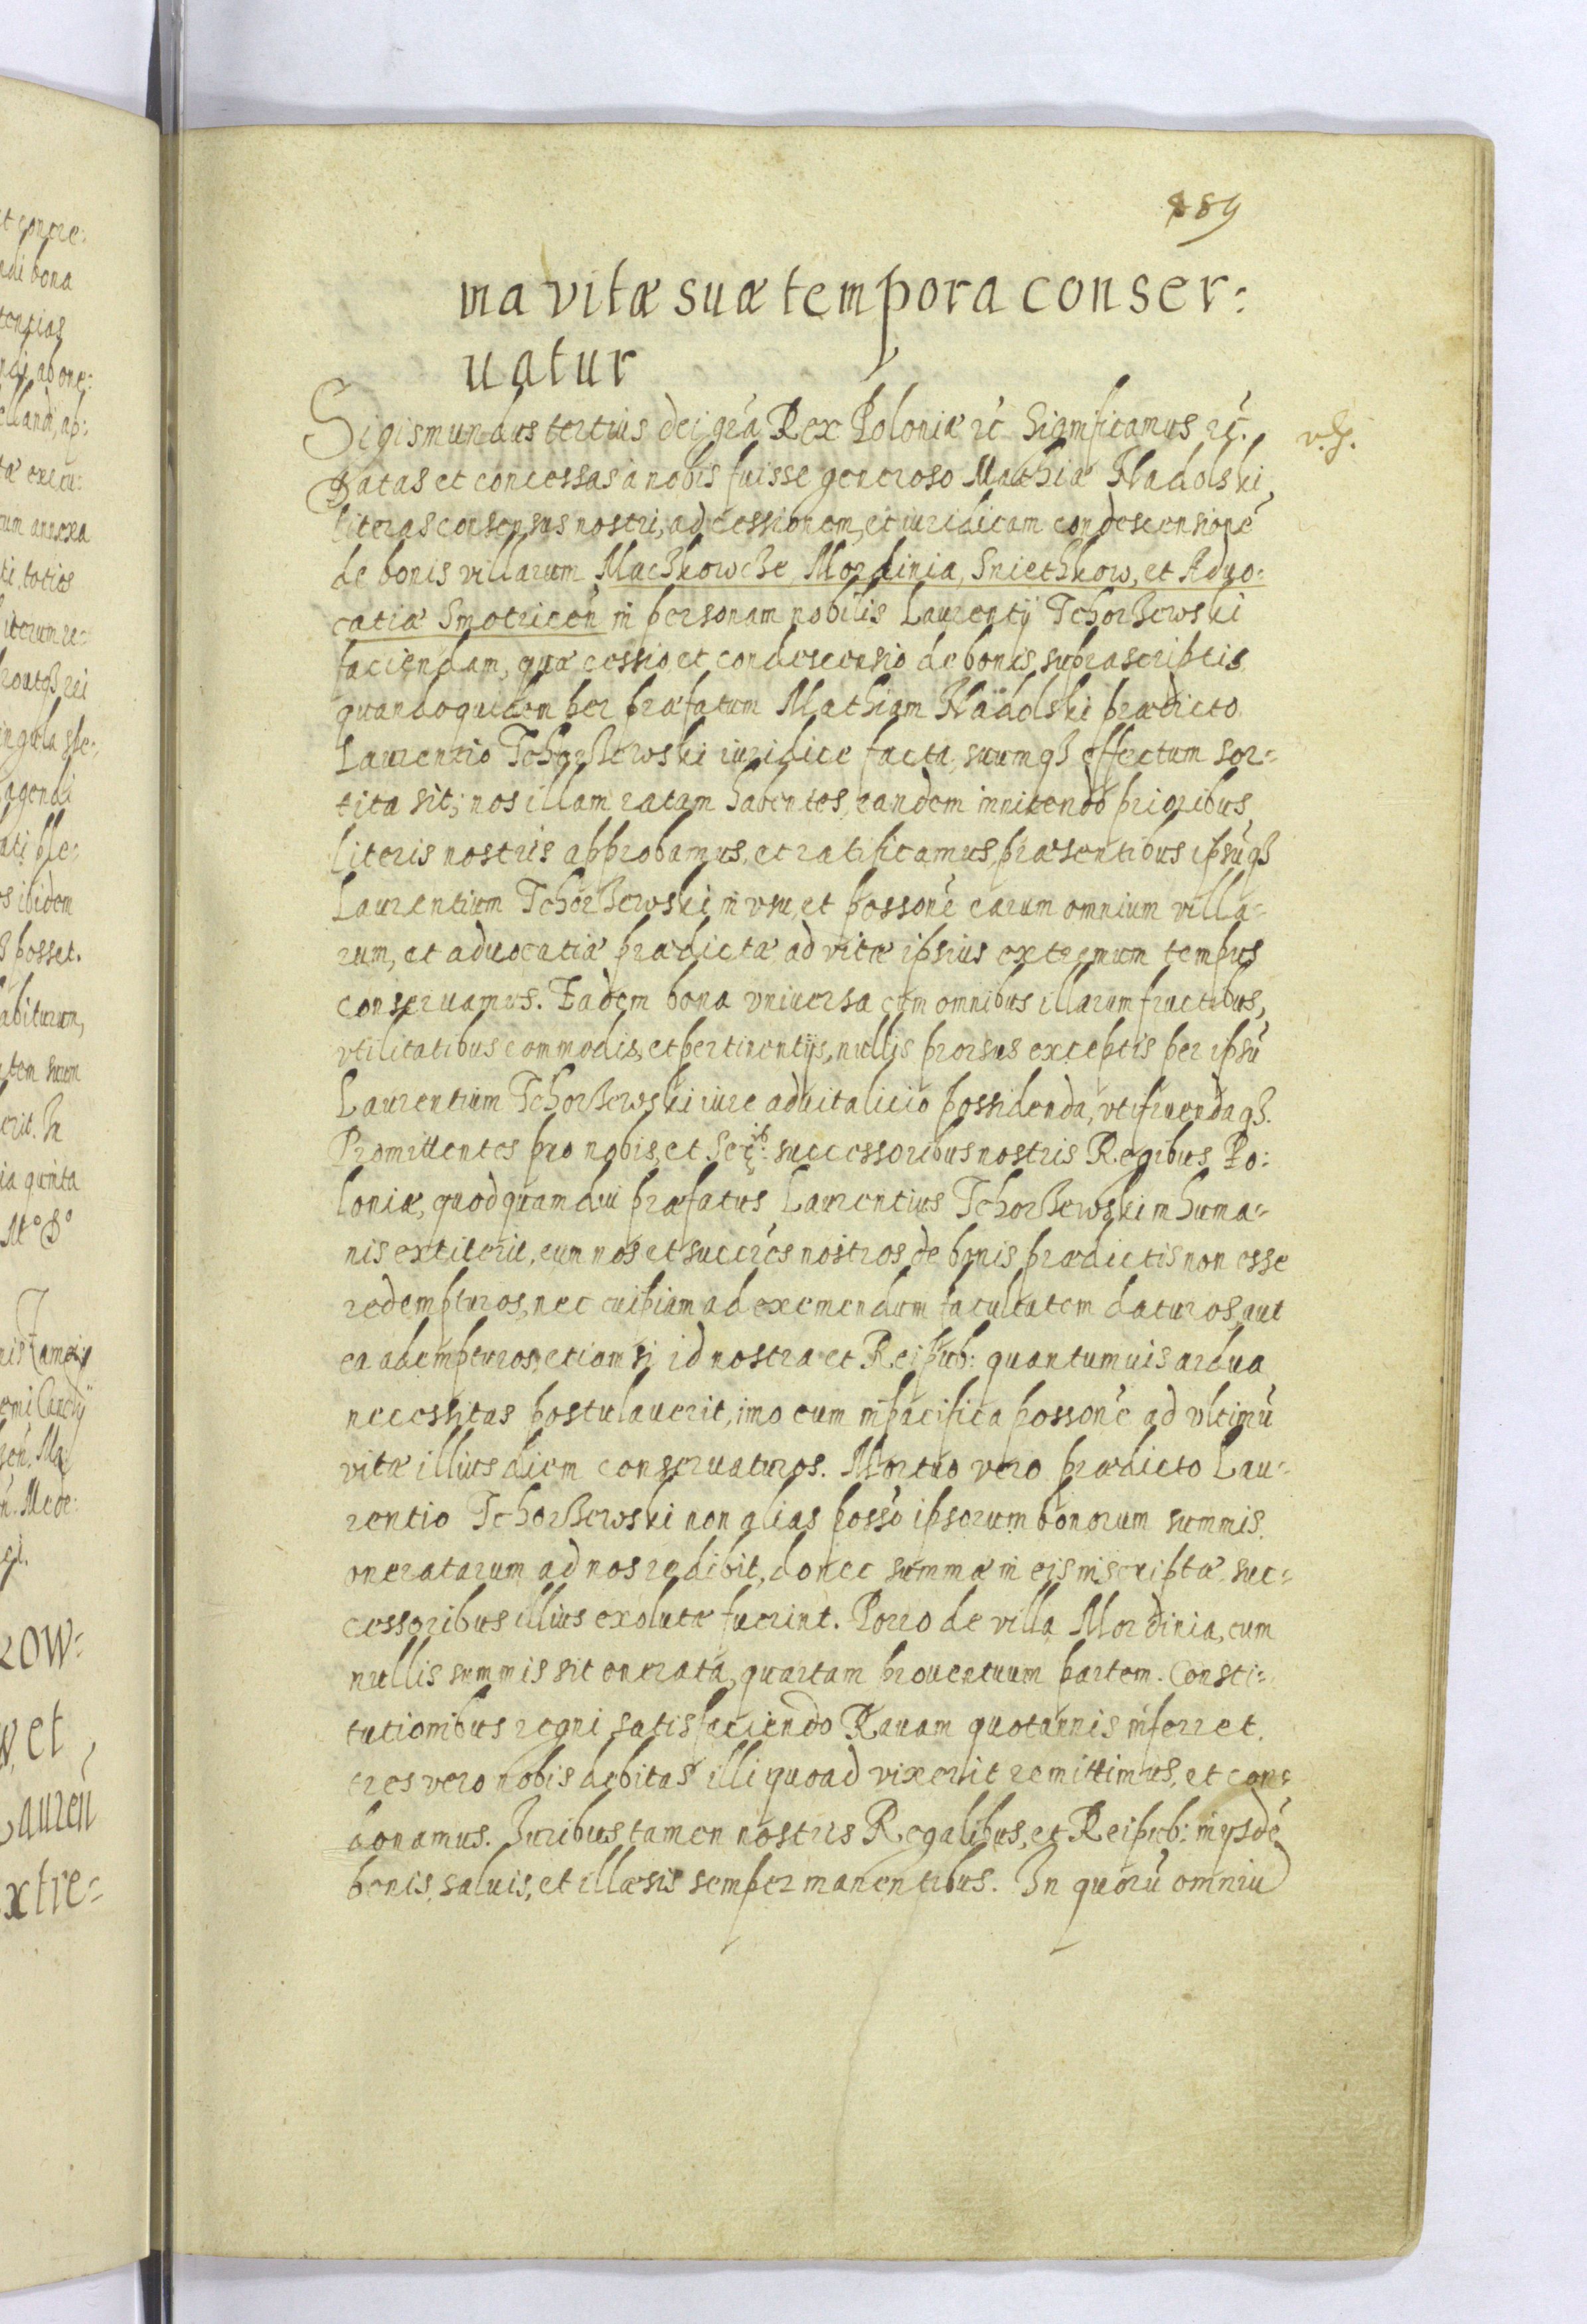 889
ma vitæ suæ tempora conser:
uatur
Sigismundus tertius dei gr̃a Rex Poloniæ ꝛc̃ Significamus ꝛc̃.
Datas et concessas a nobis fuisse generoso Mathiæ Nadolski,
literas consensus nostri, ad cessionem, et iuridicam condescensionẽ
de bonis villarum Machkowche, Mordinia, Sniethkow, et Aduo:
catiæ Smotriceñ in personam nobilis Laurentÿ Tchorßewski
faciendam, quæ cessio, et condescensio de bonis suprascriptis
quandoquidem per præfatum Mathiam Nadolski prædicto
Laurentio Tchorßewski iuridice facta, suumqꝫ effectum sor-
tita sit; nos illam ratam habentes, eandem innitendo prioribus
literis nostris approbamus, et ratificamus, præsentibus ipsũqꝫ
Laurentium Tchorßewski, in vsu, et possone̴ earum omnium villa-
rum, et aduocatiæ prædictæ ad vitæ ipsius extremum tempus
conseruamus. Eadem bona vniuersa cum omnibus illarum fructibus,
vtilitatibus commodis, et pertinentijs, nullis prorsus exceptis per ipsũ
Laurentium Tchorßewski iure aduitalicio possidenda, vtifruendaqꝫ.
Promittentes pro nobis, et Ser: successoribus nostris Regibus Po:
loniæ, quod quamdiu præfatus Laurentius Tchorßewski in huma-
nis extiterit, eum nos et succr̃es nostros de bonis prædictis non esse
redempturos, nec cuipiam ad exemendum facultatem daturos, aut
ea adempturos, etiam si id nostra et Reipub: quantumuis ardua
necessitas postulauerit, imo eum in pacifica possone̴ ad vltimũ
vitæ illius diem conseruaturos. Mortuo vero prædicto Lau-
rentio Tchorßewski non alias posso̴ ipsorum bonorum summis
oneratarum ad nos redibit, donec summæ in eis inscriptæ suc-
cessoribus illius exolutæ fuerint. Porro de villa Mordinia, cum
nullis summis sit onerata, quartam prouentuum partem. Consti-
tutionibus regni satisfaciendo Rauam quotannis inferret.
tres vero nobis debitas illi quoad vixerit remittimus, et con-
donamus. Iuribus tamen nostris Regalibus, et Reipub: in ysdẽ
bonis, saluis, et illæsis semper manentibus. In quorũ omniũ